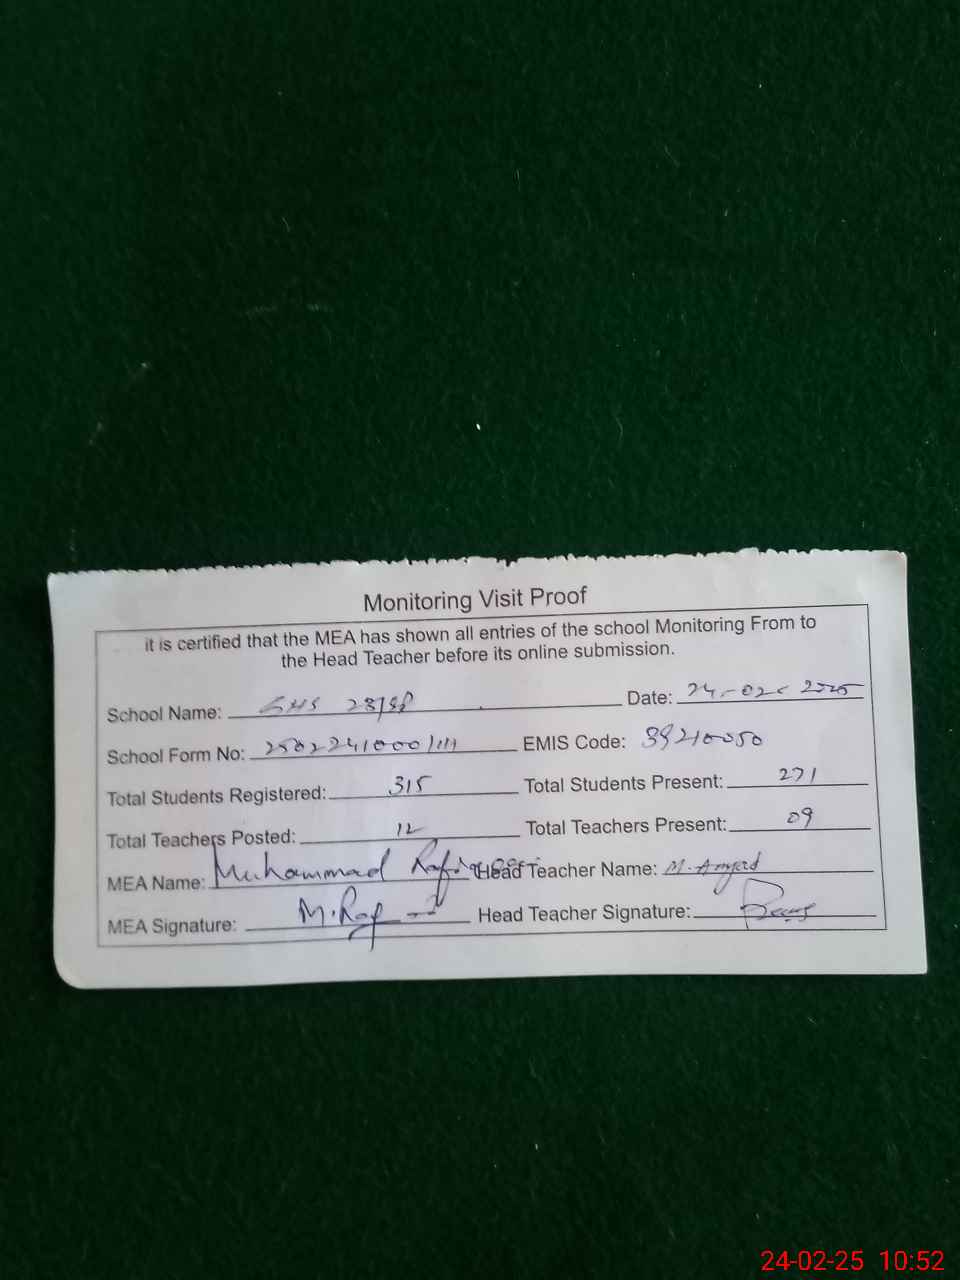 Monitoring Visit Proof
it is certified that the MEA has shown all entries of the school Monitoring From to
the Head Teacher before its online submission.
School Name: GHS 28/SP Date: 24-02-2025
School Form No: EMIS Code: 39210050
Total Students Registered: 315 Total Students Present: 271
Total Teachers Posted: 12 Total Teachers Present: 09
MEA Name: Muhammad Rafique Head Teacher Name: M. Amjad
MEA Signature: M.Raf Head Teacher Signature:
24-02-25 10:52